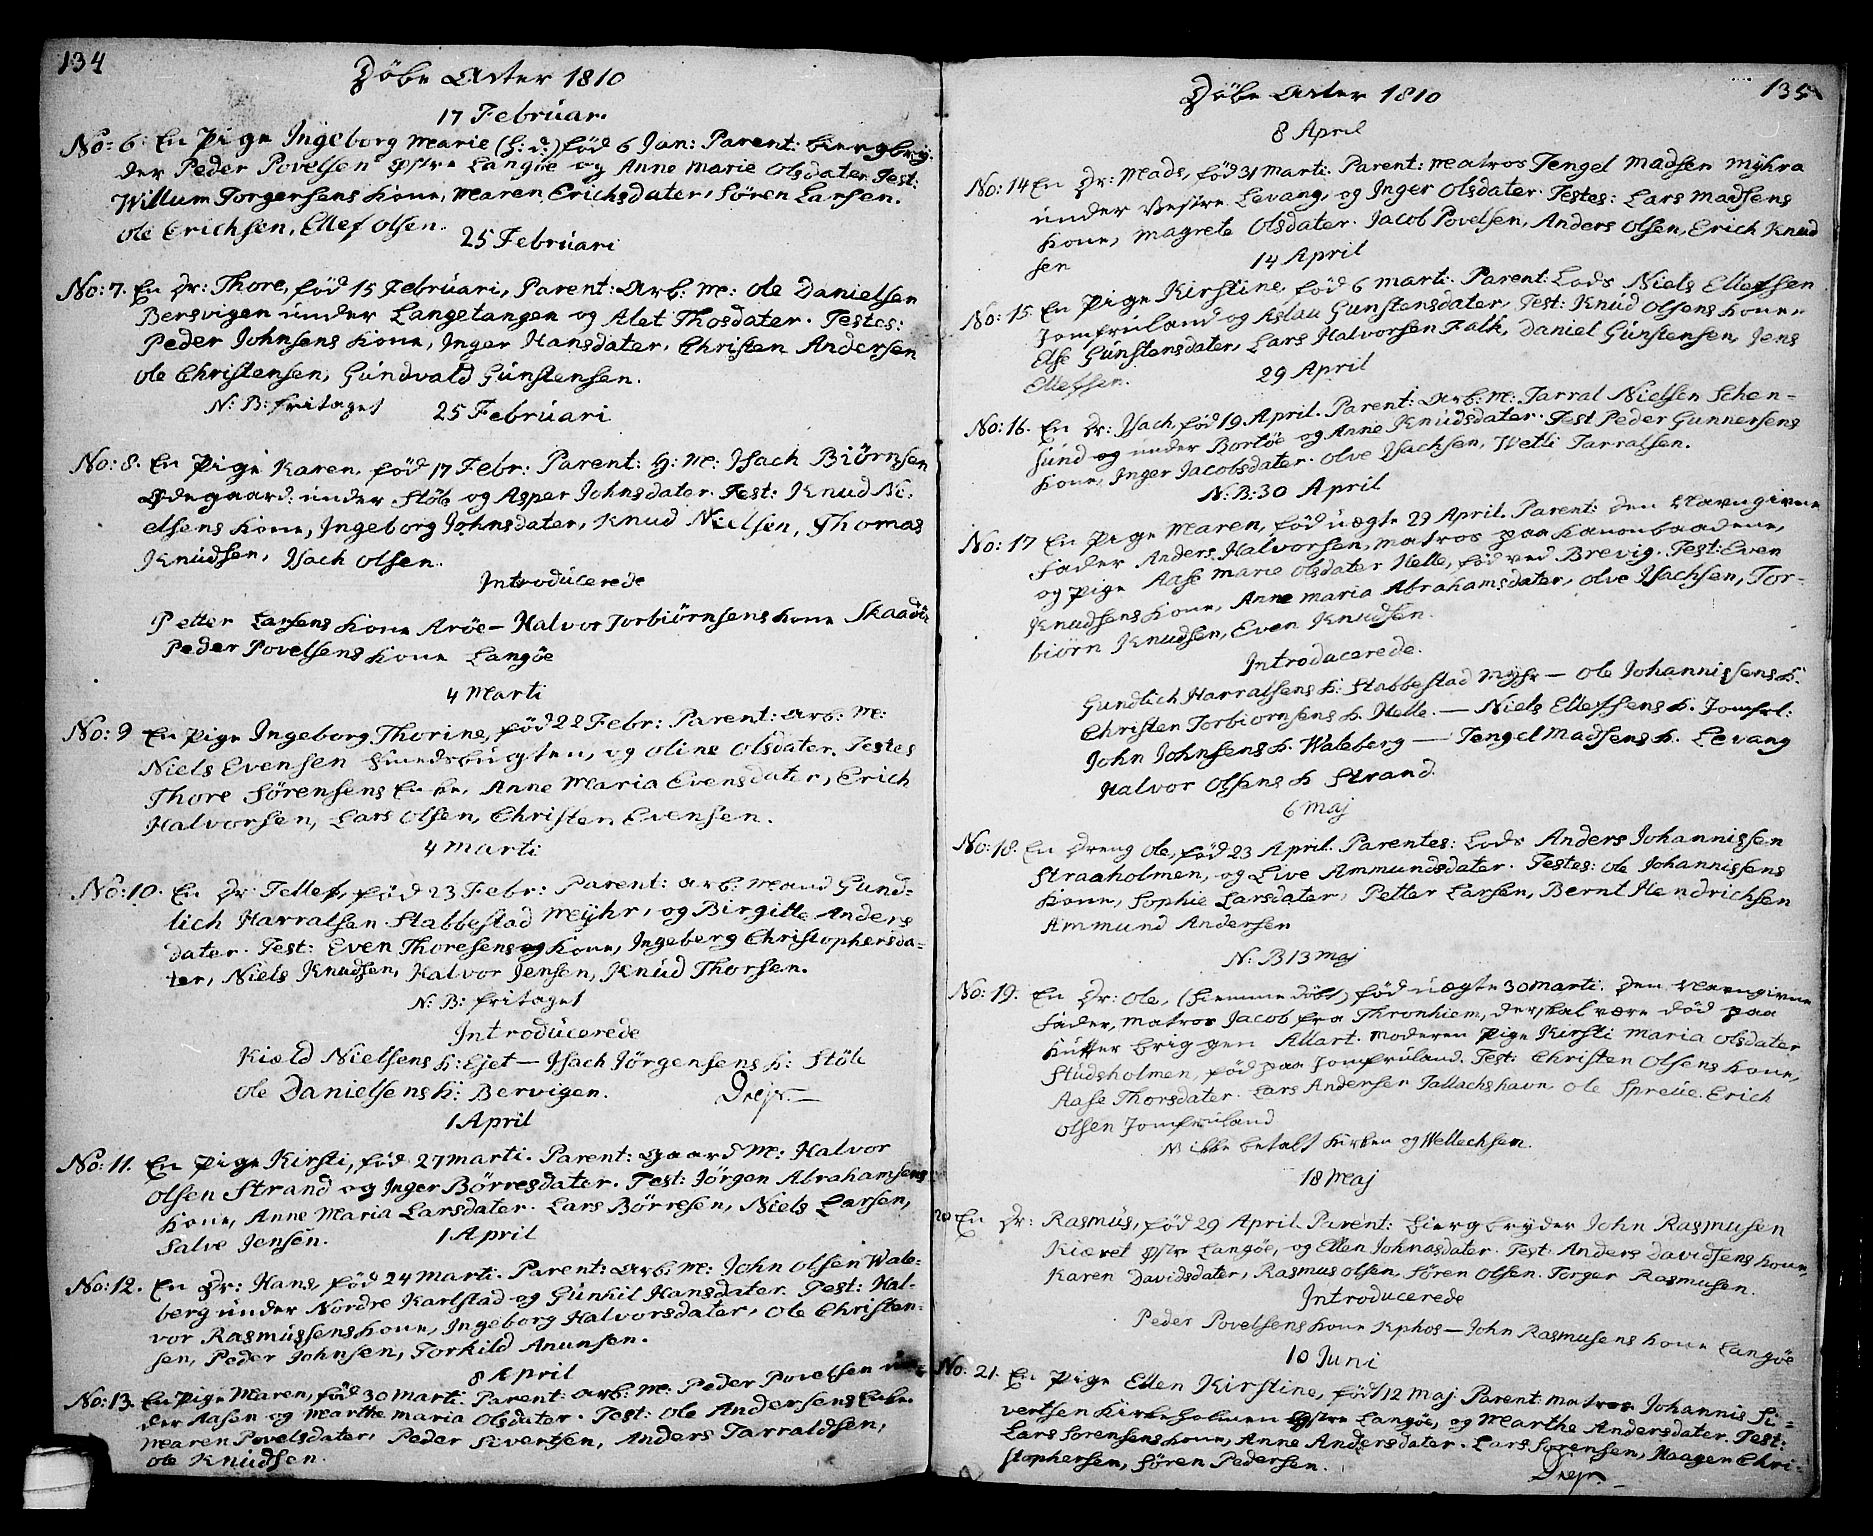 134
Döbe Acter 1810
17 Februar.
No: 6. En Pige Ingeborg Marie (H: d:) föd 6 Jan: Parent: Biergbry-
der Peder Povelsen Östre Langöe og Anne Marie Olsdater Test:
Willum Torgersens Kone, Maren Erichsdater, Sören Larsen.
Ole Erichsen, Ellef Olsen.
25 Februari
No: 7. En Dr: Thore, föd 15 Februari, Parent: Arb: M: Ole Danielsen
Bersvigen under Langetangen og Alet Thosdater. Testes:
Peder Johnsens Kone, Inger Hansdater, Christen Andersen
Ole Christensen, Gundvald Gunstensen.
N: B: fritaget
25 Februari
No: 8. En Pige Karen, föd 17 Febr: Parent: H: M: Isach Biörnsen
Ödegaard under Stöle og Asper Johnsdater. Test: Knud Ni-
elsens Kone, Ingeborg Johnsdater, Knud Nielsen, Thomas
Knudsen, Isach Olsen.
Introducerede
Petter Larsens Kone Aröe — Halvor Torbiörnsens Kone Skaadöe
Peder Povelsens Kone Langöe
4 Marti
No: 9 En Pige Ingeborg Thorine, föd 22 Febr: Parent: Arb: M:
Niels Evensen Smedsbugten, og Oline Olsdater. Testes
Thore Sörensens Anne Maria Evensdater, Erich
Halvorsen, Lars Olsen, Christen Evensen.
4 Marti
No: 10. En Dr Tellef, föd 23 Febr: Parent: Arb: Mand Gund-
lich Harralsen Stabbestad Myhr, og Birgitte Anders
dater. Test: Even Thoresens Kone, Ingeberg Christophersda-
ter, Niels Knudsen, Halvor Jensen, Knud Thorsen.
N: B: fritaget
Introducerede
Kiæld Nielsens K: Ejet — Isach Jörgensens K: Stöle
Ole Danielsens K: Bervigen.
1 April
No: 11. En Pige Kirsti, föd 27 Marti. Parent: Gaard M: Halvor
Olsen Strand og Inger Börresdater. Test: Jörgen Abrahamsens
Kone, Anne Maria Larsdater. Lars Börresen, Niels Larsen,
Salve Jensen.
1 April
No: 12. En Dr: Hans, föd 24 Marti. Parent: Arb: M: John Olsen Wale-
berg under Nordre Karlstad og Gunhil Hansdater. Test: Hal-
vor Rasmussens Kone, Ingeborg Halvorsdater, Ole Christen-
sen, Peder Johnsen, Torkild Anunsen.
8 April
No: 13. En Pige Maren, föd 30 Marti. Parent: Arb: M: Peder Povelsen un-
der Aasen og Marthe Maria Olsdater. Test: Ole Andersens Enke
Maren Povelsdater, Peder Sivertsen, Anders Tarraldsen,
Ole Knudsen.
135
Döbe Acter 1810
8 April
No: 14 En Dr: Mads, föd 31 Marti. Parent: Matros Tengel Madsen Myhra
under Vestre Levang, og Inger Olsdater. Testes: Lars Madsens
Kone, Magrete Olsdater. Jacob Povelsen, Anders Olsen, Erich Knud
sen
14 April
No: 15. En Pige Kirstine, föd 6 Marti. Parent: Lods Niels Ellefsen
Jomfruland og Aslau Gunstensdater, Test: Knud Olsens Kone,
Else Gunstensdater, Lars Halvorsen Falk, Daniel Gunstensen, Jens
Ellefsen.
29 April
No: 16. En Dr: Isach föd 19 April. Parent: Arb: M: Tarral Nielsen Schen-
sund og under Bortöe og Anne Knudsdater. Test Peder Gunnersens
Kone, Inger Jacobsdater. Olve Isachsen, Wetli Tarralsen.
N: B: 30 April
No: 17 En Pige Maren, föd uægte 29 April. Parent: den Navngivne
Fader Anders Halvorsen, Matros paa Kanonbaadene,
og Pige Aase Marie Olsdater Helle, föd ved Brevig. Test: Even
Knudsens Kone, Anne Maria Abrahamsdater, Olve Isachsen, Tor-
biörn Knudsen, Even Knudsen.
Introducerede.
Gundlich Harralsens K: Stabbestad Myhr — Ole Johannissens K.
Christen Torbiornsens K. Helle. — Niels Ellefsens K. Jomfrl:
John Johnsens K. Waleberg — Tengel Madsens K. Levang
Halvor Olsens K Strand.
6 Maj
No: 18. En Dreng Ole, föd 23 April. Parentes: Lods Anders Johannissen
Straaholmen, og Live Ammundsdater. Testes: Ole Johannissens
Kone, Sophie Larsdater, Petter Larsen, Bernt Hendrichsen
Ammund Andersen
N: B 13 Maj
No: 19. En Dr: Ole, (hiemme döbt) föd uægte 30 Marti. Den Navngivne
Fader, Matros Jacob fra Thronhiem, der skal være död paa
Kutter briggen Allart. Moderen Pige Kirsti Maria Olsdater
Studsholmen, föd paa Jomfruland. Test: Christen Olsens Kone,
Aase Thorsdater. Lars Andersen Tallachshavn Ole Spreüe. Erich
Olsen Jomfruland
N ikke betalt Kirken og Wellechsen.
18 Maj
20 En Dr: Rasmus, föd 29 April. Parent: Bierg bryder John Rasmusen
Kiæret Östr Langöe, og Ellen Johnasdater. Test: Anders Davidsens Kone,
Karen Davidsdater, Rasmus Olsen, Sören Olsen. Torger Rasmusen.
Introducerede
Peder Povelsens Kone Kphos — John Rasmusens Kone Langöe
10 Juni
No: 21. En Pige Ellen Kirstine, föd 12 Maj Parent: Matros Johannis Si-
vertsen Kirkeholmen Östre Langöe, og Marthe Andersdater. Test:
Lars Sorensens Kone, Anne Andersdater. Lars Sorensen, Haagen Chri-
stophersen, Sören Pedersen.